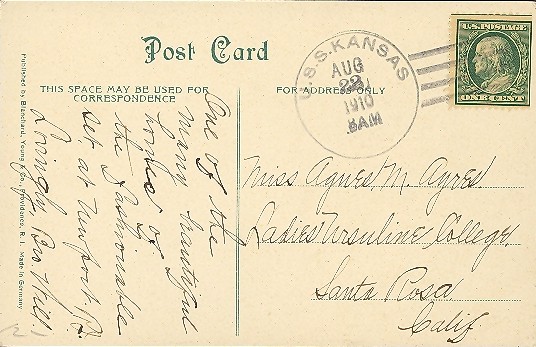 Post Card
THIS SPACE MAY BE USED FOR
CORRESPONDENCE
FOR ADDRESS ONLY
U.S.S. KANSAS
AUG
22
1910
8AM
U.S. POSTAGE
One of the
many beautiful
homes of
the Fashionable
set, at Newport R.I.
Lovingly, Bro Will.
Miss Agnes M. Ayres.
Ladies Ursuline College,
Santa Rosa
Calif.
Published by Blanchard, Young & Co., Providence, R. I. Made in Germany